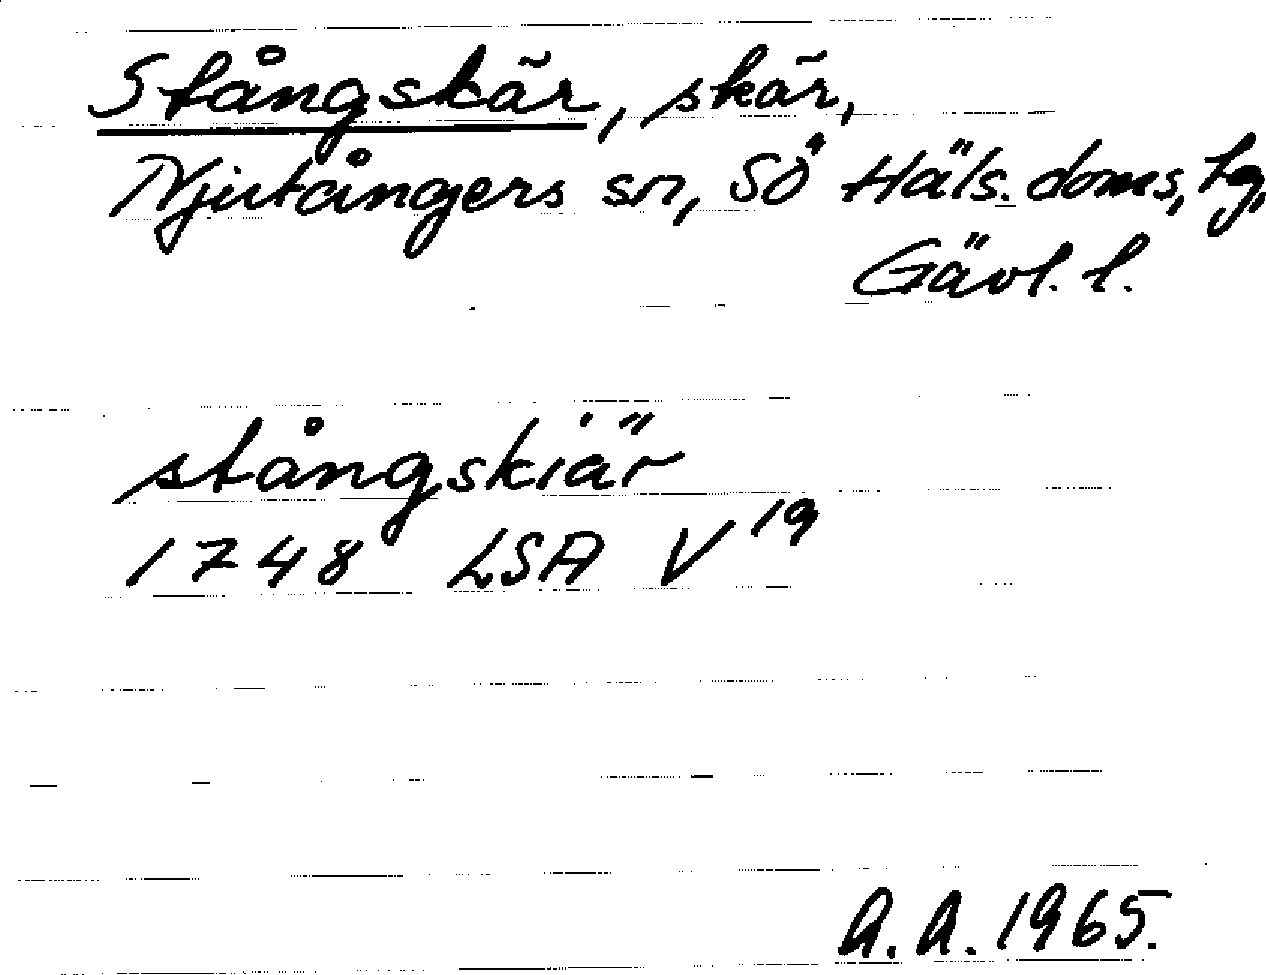 Stångskär, skär,
Njutångers sn, SÖ Häls. doms. tg,
Gävl. l.
stångskiär
1748 LSA V 19
A.A. 1965.